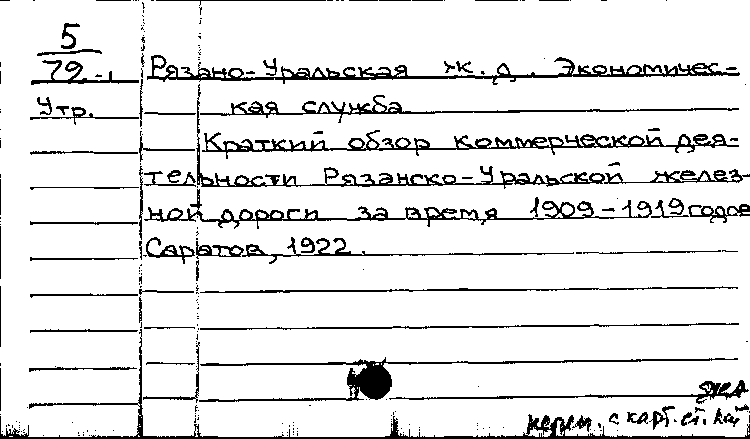 5
79-1 Рязано-Уральская ж.д. Экономичес-
Утр. кая служба
Краткий обзор коммерческой дея-
тельности Рязанско-Уральской желез-
ной дороги за время 1909-1919 годов
Саратов, 1922.
с карт. ст.